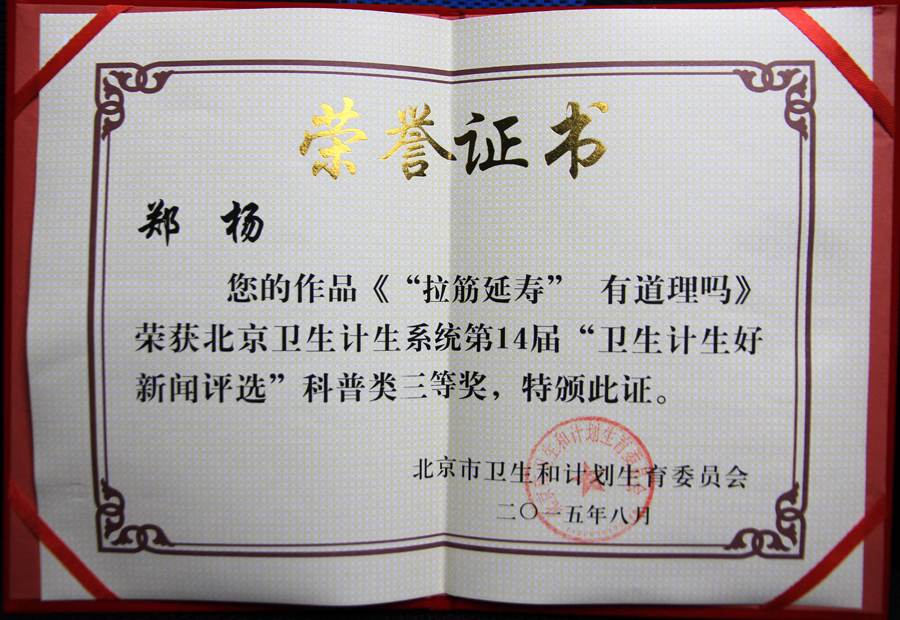 荣誉证书
郑 杨
您的作品《“拉筋延寿” 有道理吗》
荣获北京卫生计生系统第14届“卫生计生好
新闻评选”科普类三等奖，特颁此证。
北京市卫生和计划生育委员会
二〇一五年八月
北京市卫生和计划生育委员会